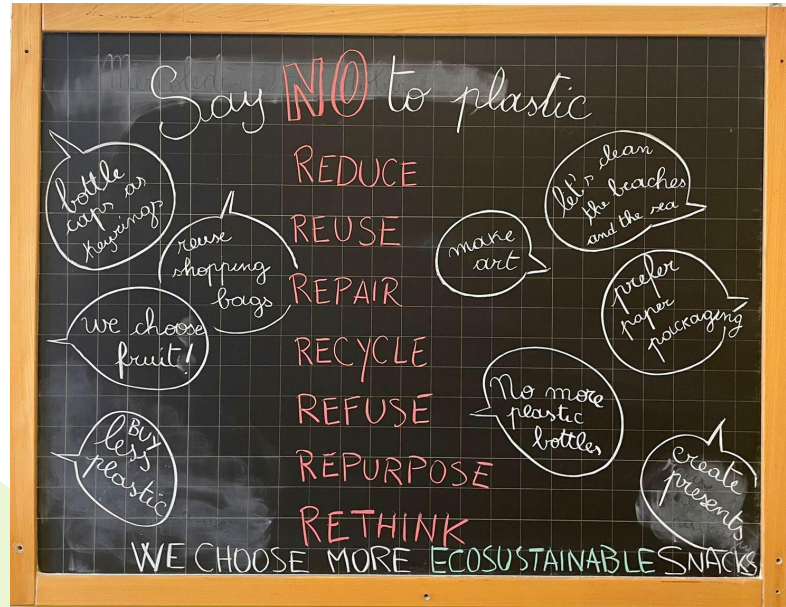 Say NO to plastic
REDUCE
REUSE
REPAIR
RECYCLE
REFUSE
REPURPOSE
RETHINK
bottle
caps as
keyrings
reuse
shopping
bags
we choose
fruit!
BUY
less
plastic
let's clean
the beaches
and the sea
make
art
prefer
paper
packaging
No more
plastic
bottles
create
presents
WE CHOOSE MORE ECOSUSTAINABLE SNACKS